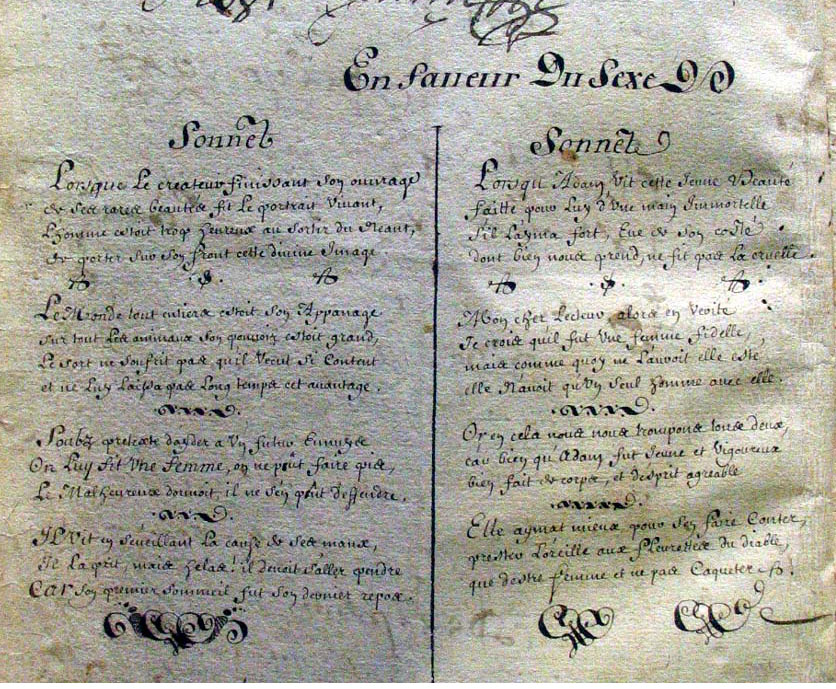 En faueur Du Sexe
Sonnet
Lorsque Le createur finissant son ouvrage
de ses rares beautes fit Le portrait Vivant,
L'homme estoit trop heureux au sortir du Neant,
de porter sur son front cette divine Image.
Le Monde tout entiere estoit son Appanage
sur tout Les animaux son pouvoir estoit grand,
Le sort ne soufrit pas quil vecut si Content
et ne Luy Laissa pas Long temps cet auantage.
Soubz pretexte dayder a Vn futur
On Luy fit Vne femme, on ne peut faire pis,
Le Malheureux dormoit, il ne s'en peut deffendre,
IL Vit en s'eueillant La cause de ses maux,
Il La prit, mais helas! il deuoit s'aller pendre
Car son premier sommeil fut son dernier repos.
Sonnet
Lorsqu Adam Vit cette Jeune Beauté
faitte pour Luy d'vne main Jmmortelle
S'il Layma fort, Eue de son costé
dont bien nous prend, ne fit pas La cruelle.
Mon cher Lecteur alors en Verite
Je crois quil fut Vne femme fidelle,
mais comme quoy ne Lauroit elle esté
elle Nauoit qu'Vn seul homme auec elle.
Or en cela nous nous trompons tous deux,
car bien qu Adam fut Jeune et Vigoureux
bien fait de corps, et desprit agreable
Elle aymat mieux pour s'en faire Conter,
prester L'oreille aux fleurettes du diable,
que destre femme et ne pas Caqueter!